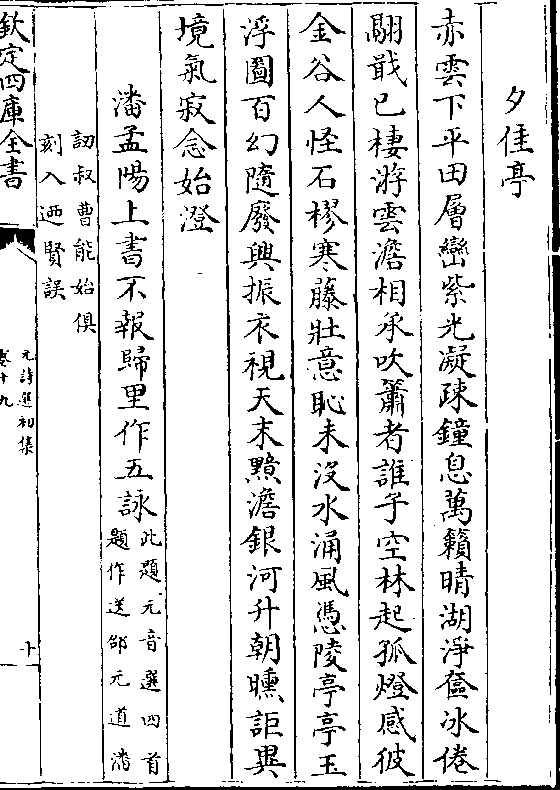 夕佳亭
赤雲下平田層巒紫光凝疎鐘息萬籟晴湖淨奩冰倦
翮戢已棲游雲澹相承吹簫者誰子空林起孤燈感彼
金谷人怪石樛寒藤壯意恥未沒水涌風憑陵亭亭玉
浮圖百幻隨廢興振衣視天末黯澹銀河升朝曛詎異
境氣寂念始澄
潘孟陽上書不報歸里作五詠此題元音選四首
題作送邵元道潘
訒叔曹能始俱
刻入迺賢誤
欽定四庫全書
元詩選初集
卷十九
十